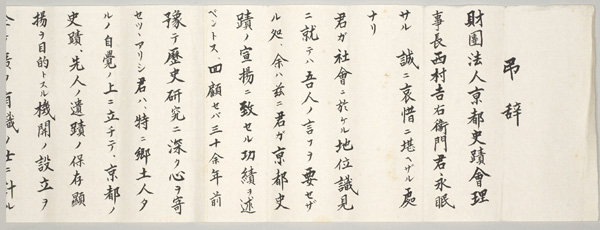 弔辞
財團法人京都史蹟會理
事長西村吉右衛門君永眠
サル誠ニ哀惜ニ堪ヘザル處
ナリ
君ガ社會ニ於ケル地位識見
ニ就テハ吾人ノ言フヲ要セザ
ル処、余ハ玆ニ君ガ京都史
蹟ノ宣揚ニ致セル功績ヲ述
ベントス、回顧セバ三十余年前
豫テ歴史研究ニ深ク心ヲ寄
セツヽアリシ君ハ、特ニ郷土人タ
ルノ自覺ノ上ニ立チテ、京都ノ
史蹟、先人ノ遺蹟ノ保存顯
揚ヲ目的トスル機関ノ設立ヲ